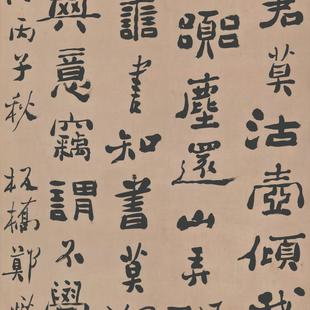 君莫沽壺傾我
囂塵還山弄
譱書知書莫
意竊謂不學
丙子秋板橋鄭燮